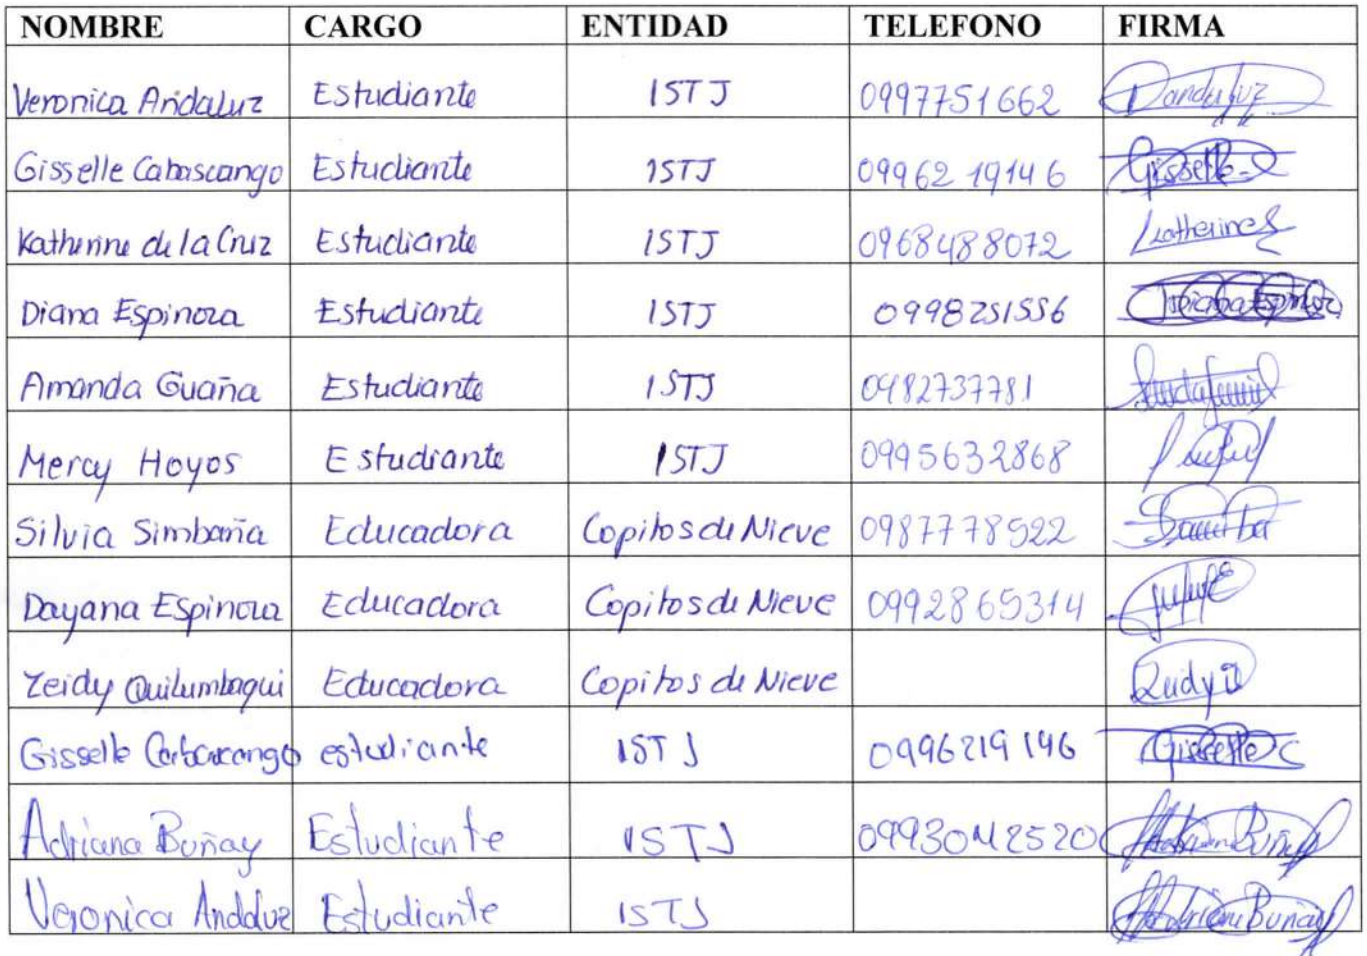 NOMBRE CARGO ENTIDAD TELEFONO FIRMA
Veronica Andaluz Estudiante ISTJ 0997751662
Gisselle Cabascango Estudiante ISTJ 0996219146 Gisselle
Katherine de la Cruz Estudiante ISTJ 0968488072 Katherine
Diana Espinoza Estudiante ISTJ 0998251556 Diana Espinoza
Amanda Guaña Estudiante ISTJ 0982737781
Mercy Hoyos Estudiante ISTJ 0995632868
Silvia Simbaña Educadora Copitos de Nieve 0987778522
Dayana Espinoza Educadora Copitos de Nieve 0992865314
Zeidy Quilumbaqui Educadora Copitos de Nieve
Gisselle Cabascango estudiante ISTJ 0996219146 Gisselle C
Adriana Buñay Estudiante ISTJ Adriana Buñay
Veronica Andaluz Estudiante ISTJ Adriana Buñay